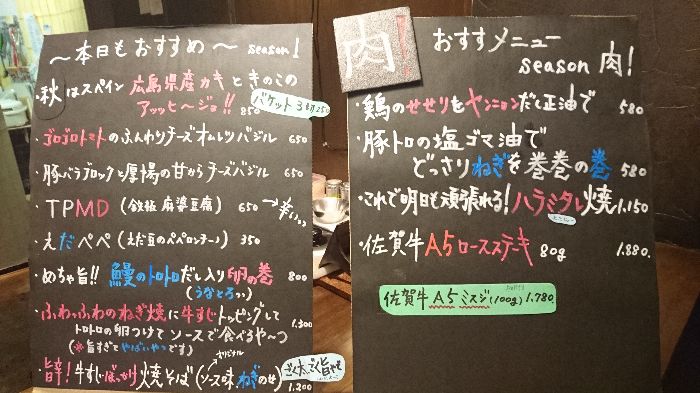 〜本日もおすすめ〜 season 1
・秋はスペイン 広島県産カキときのこの
アッヒ〜ジョ!! 850
バケット3切250
・ゴロゴロトマトのふんわりチーズオムレツバジル 650
・豚バラブロックと厚揚の甘からチーズバジル 650
・TPMD (鉄板麻婆豆腐) 650
・えだペペ (えだ豆のペペロンチーノ) 350
・めちゃ旨!! 鰻のトロトロだし入り卵の巻 800
(うなとろっ)
・ふわっふわのねぎ焼に牛すじトッピングして
トロトロの卵つけてソースで食べるや〜つ 1,300
(※旨すぎてやばいやつです)
・旨辛!牛すじぼっかけ焼そば(ソース味 ねぎのせ) 1,200
オリジナル
肉!
おすすメニュー
season 肉!
・鶏のせせりをヤンニョンだし正油で 580
・豚トロの塩ゴマ油で
どっさりねぎを巻巻の巻 580
・これで明日も頑張れる!ハラミタレ焼 1,150
・佐賀牛A5ロースステーキ 80g 1,880.
佐賀牛A5ミスジ(100g) 1,780.